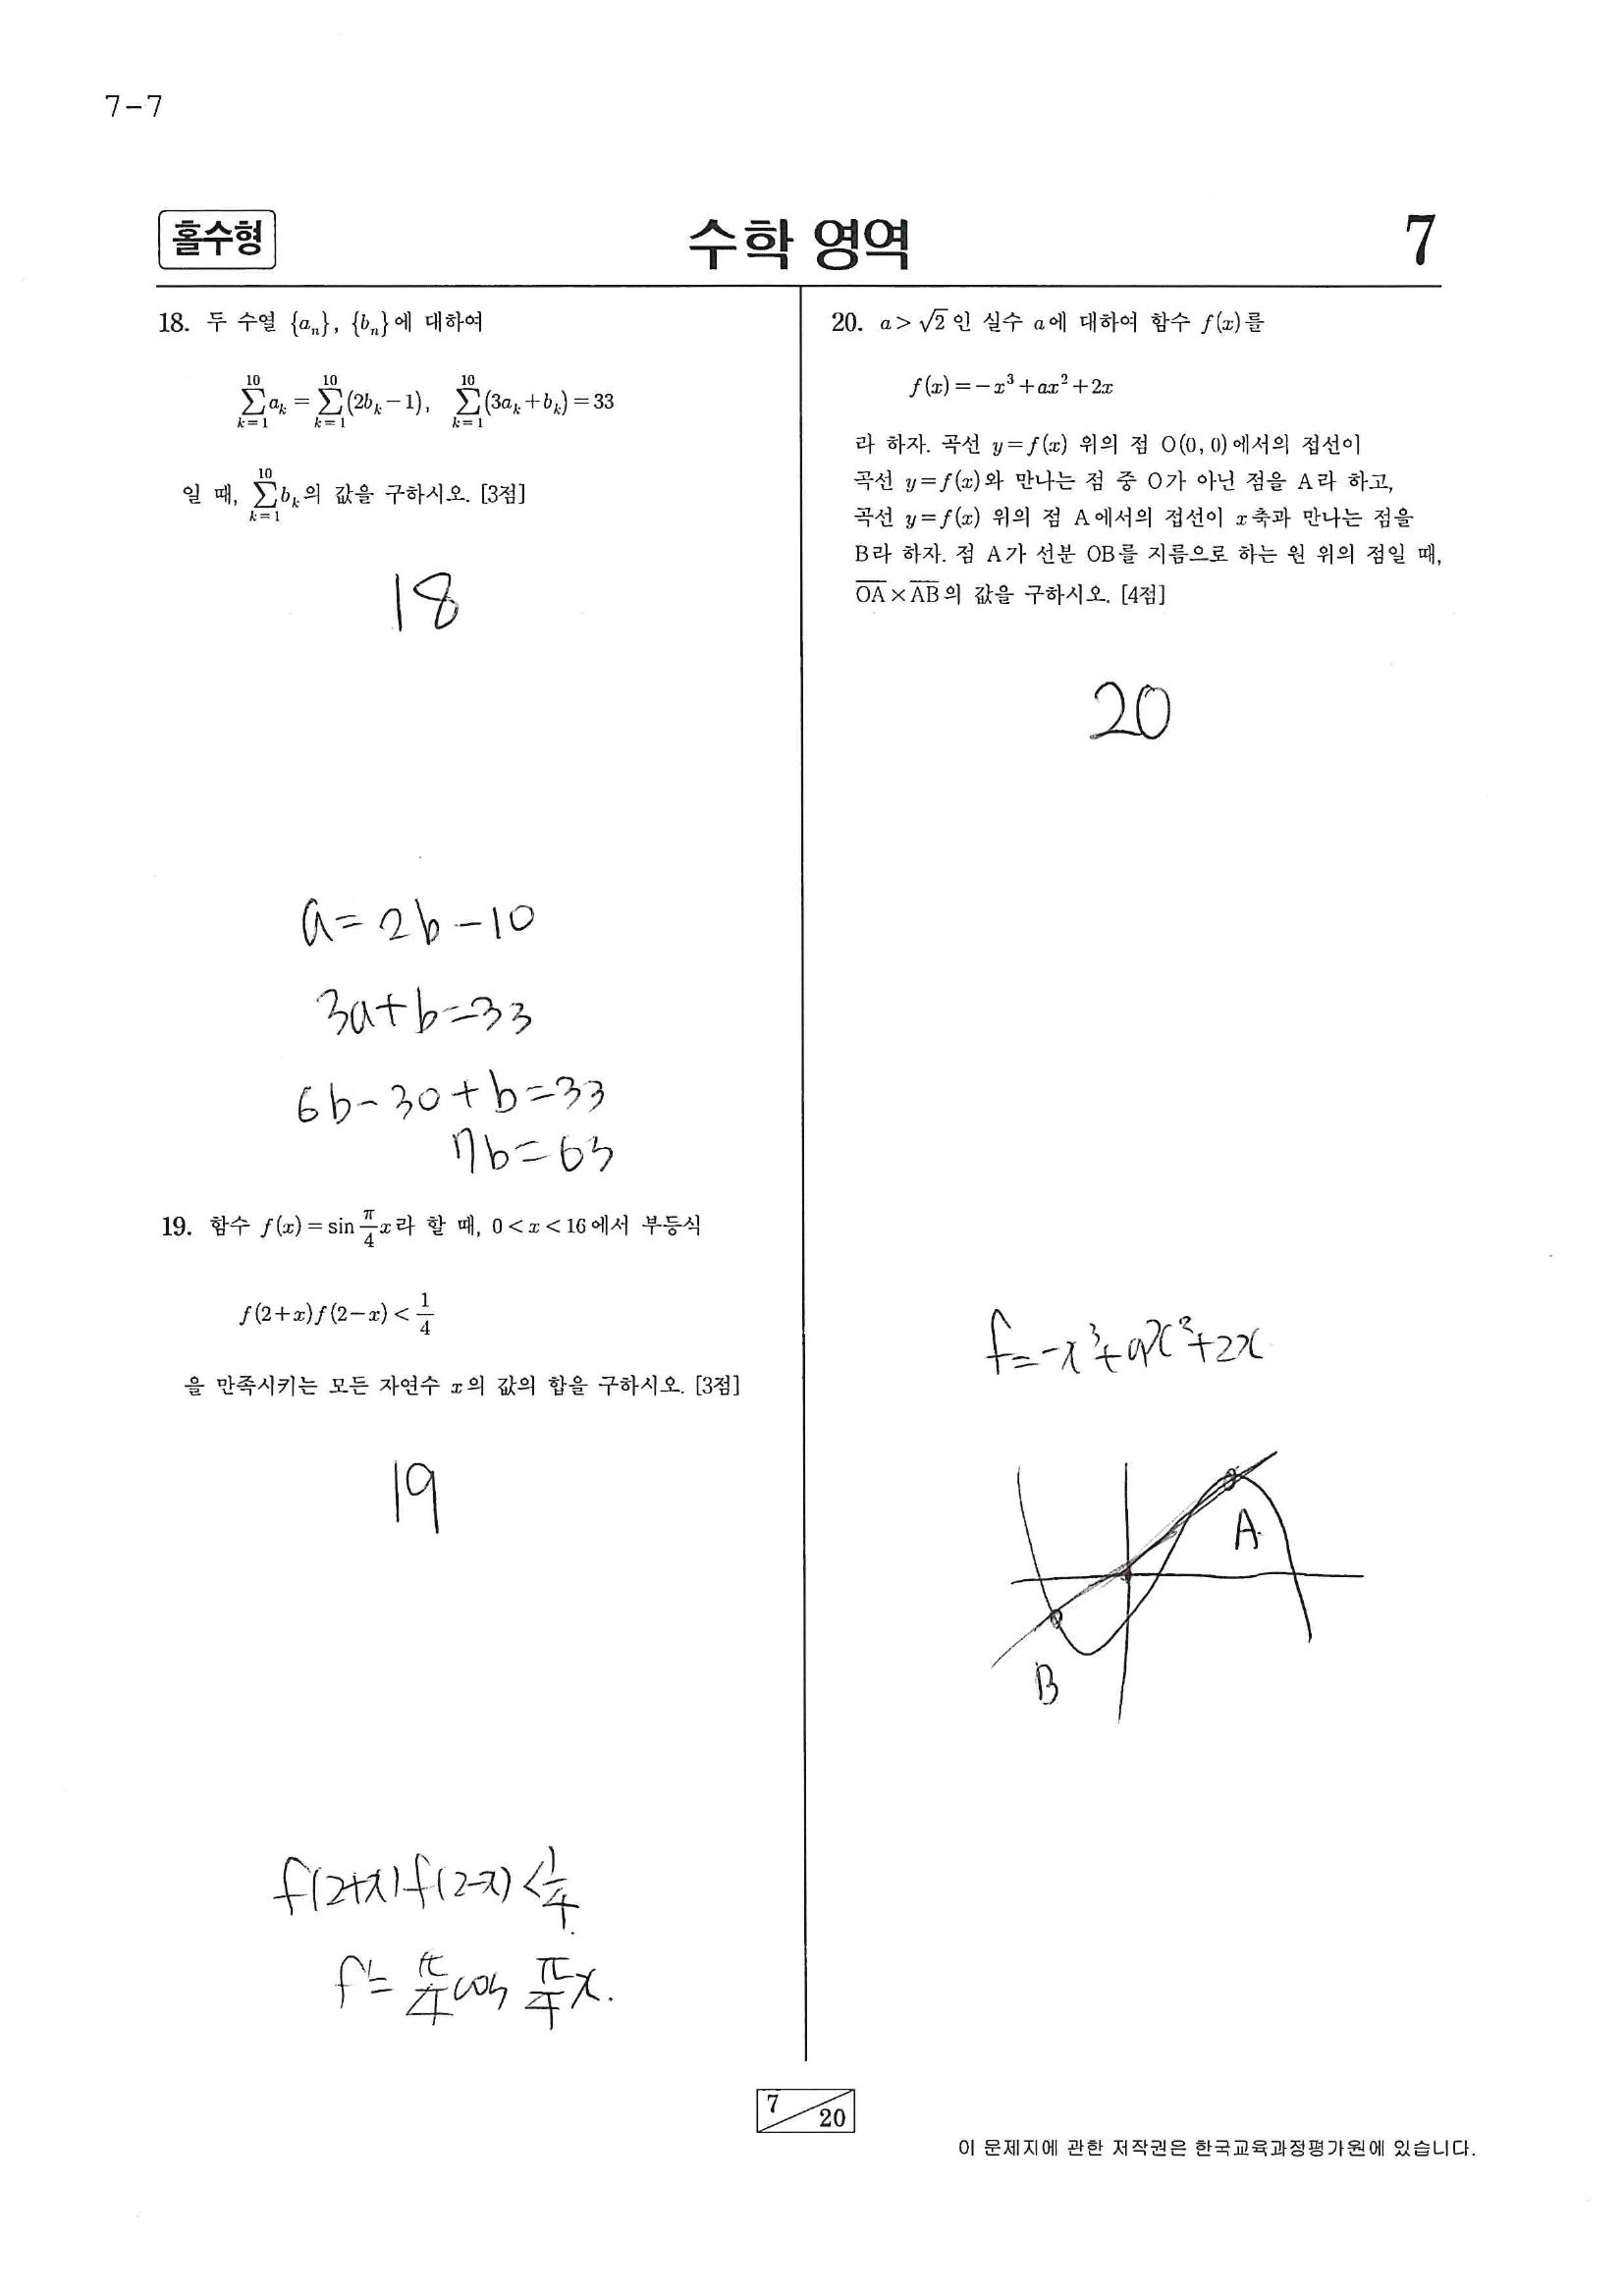 7-7
홀수형
수학 영역
7
18. 두 수열 {aₙ}, {bₙ}에 대하여
∑_{k=1}^{10} aₖ = ∑_{k=1}^{10} (2bₖ-1), ∑_{k=1}^{10} (3aₖ+bₖ)=33
일 때, ∑_{k=1}^{10} bₖ의 값을 구하시오. [3점]
18
a=2b-10
3a+b=33
6b-30+b=33
7b=63
19. 함수 f(x)=sin π/4 x라 할 때, 0<x<16에서 부등식
f(2+x)f(2-x)< 1/4
을 만족시키는 모든 자연수 x의 값의 합을 구하시오. [3점]
19
f(2+x)f(2-x)<1/4.
f'= π/4 cos π/4 x.
20. a>√2인 실수 a에 대하여 함수 f(x)를
f(x)=-x³+ax²+2x
라 하자. 곡선 y=f(x) 위의 점 O(0, 0)에서의 접선이
곡선 y=f(x)와 만나는 점 중 O가 아닌 점을 A라 하고,
곡선 y=f(x) 위의 점 A에서의 접선이 x축과 만나는 점을
B라 하자. 점 A가 선분 OB를 지름으로 하는 원 위의 점일 때,
O̅A̅×A̅B̅의 값을 구하시오. [4점]
20
f=-x³+ax²+2x
A
B
7/20
이 문제지에 관한 저작권은 한국교육과정평가원에 있습니다.